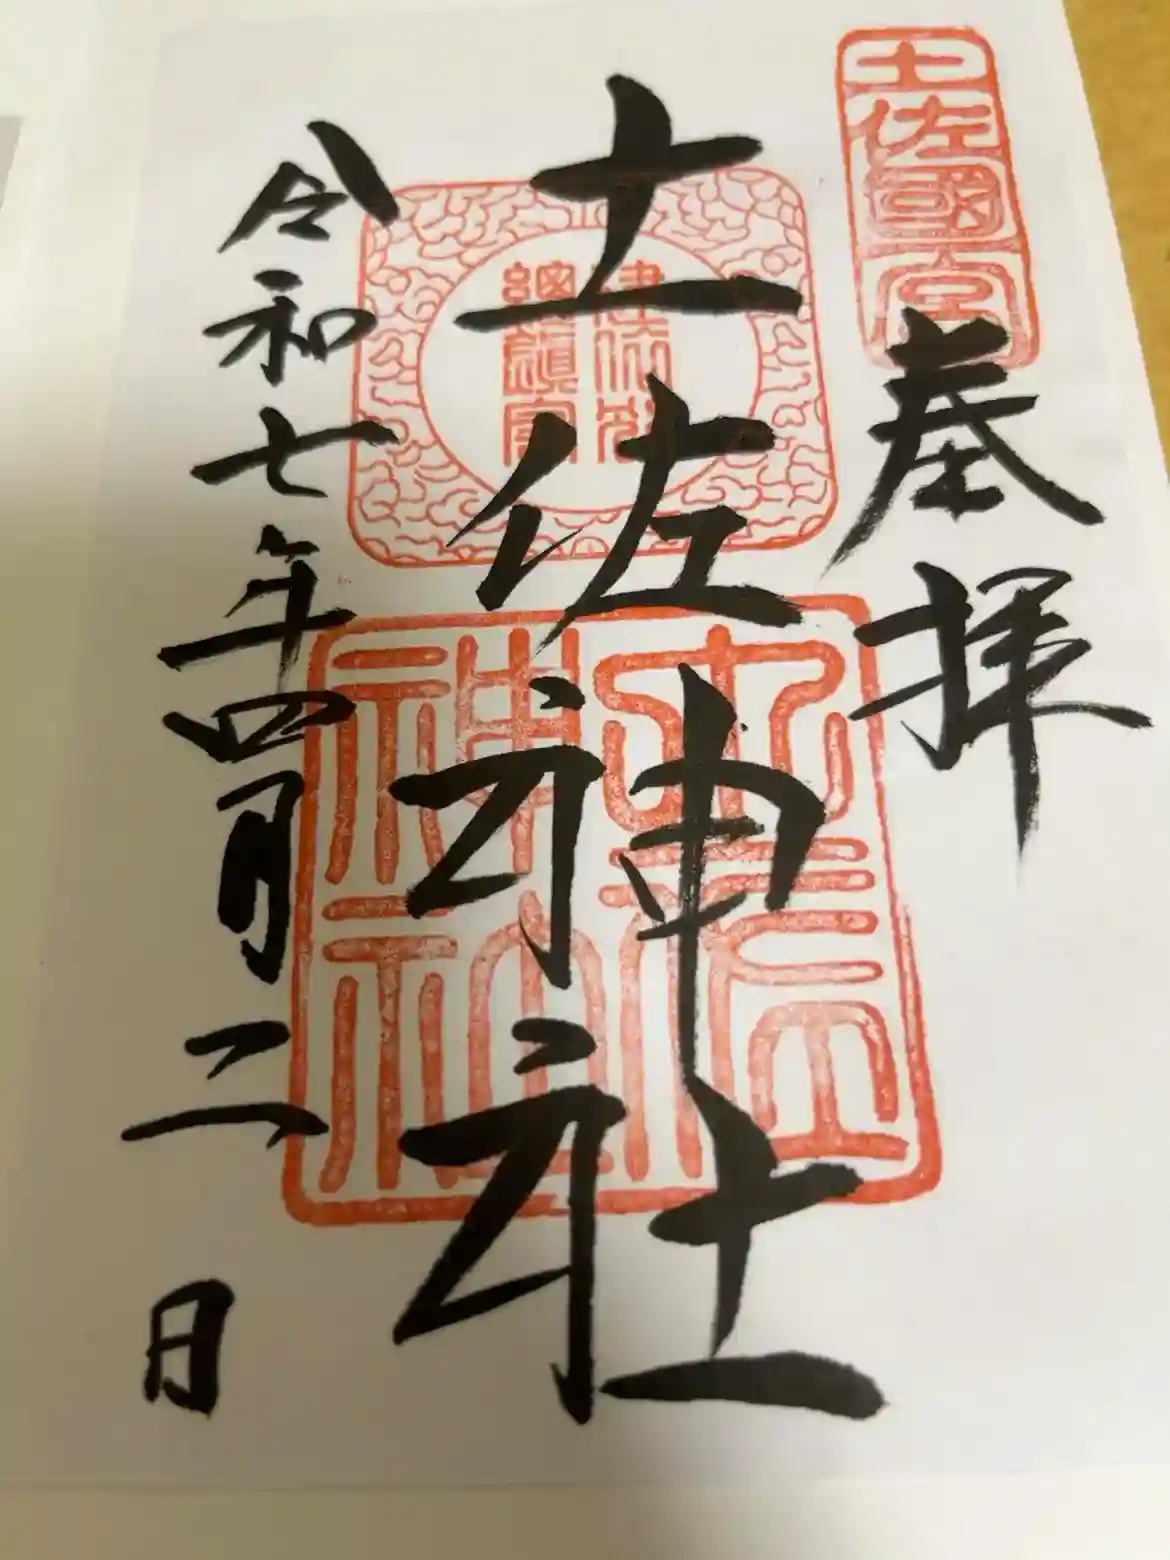 土佐國一宮
奉拝
建依別
總鎮守
土佐神社
土佐
神社
令和七年四月二日